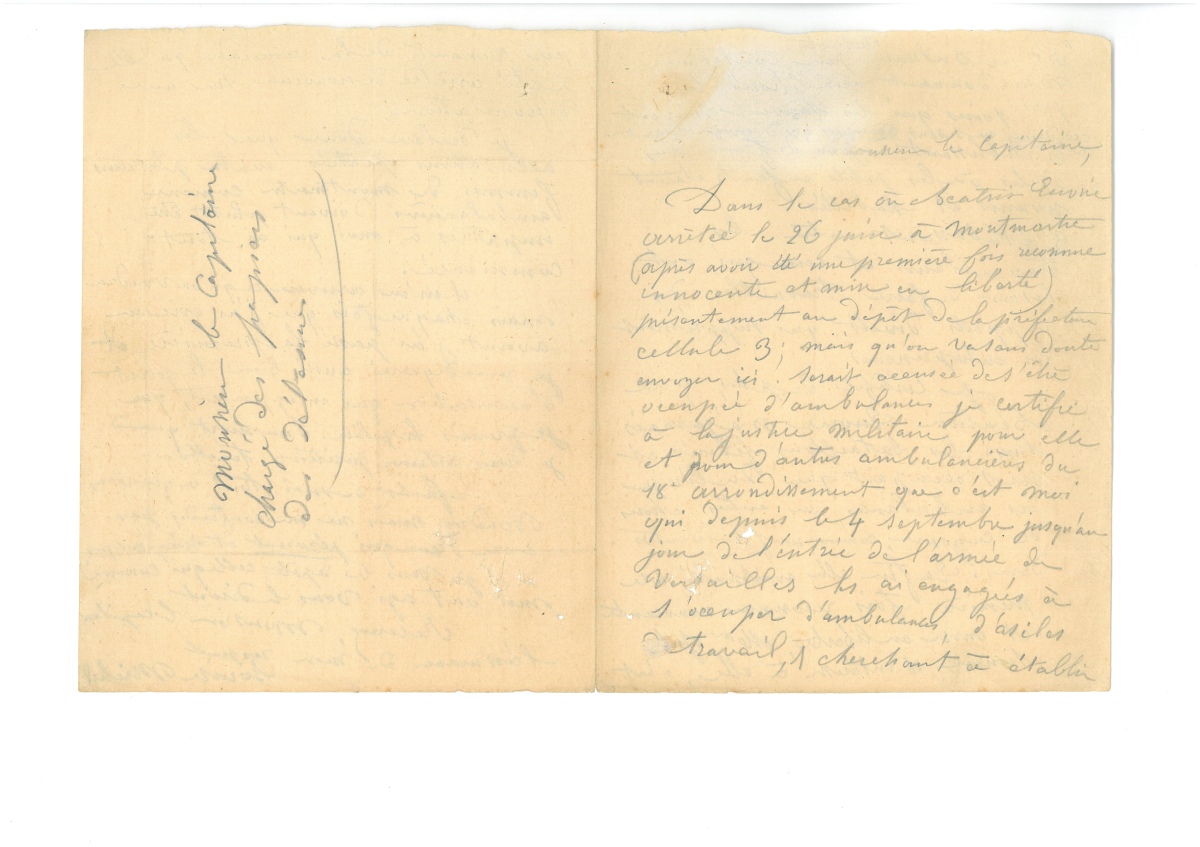 Monsieur le Capitaine
chargé des papiers
des détenues
le Capitaine,
Dans le cas où Béatrix Excoffon
arrêtée le 26 juin à Montmartre
(après avoir été une première fois reconnue
innocente et mise en liberté)
présentement au dépôt de la préfecture
cellule 3; mais qu'on va sans doute
envoyer ici. Serait accusée de s'être
occupée d'ambulances je certifie
à la justice militaire pour elle
et pour d'autres ambulancières du
18e arrondissement que c'est moi
qui depuis le 4 septembre jusqu'au
jour de l'entrée de l'armée de
Versailles les ai engagées à
s'occuper d'ambulances d'asiles
de travail, cherchant à établir